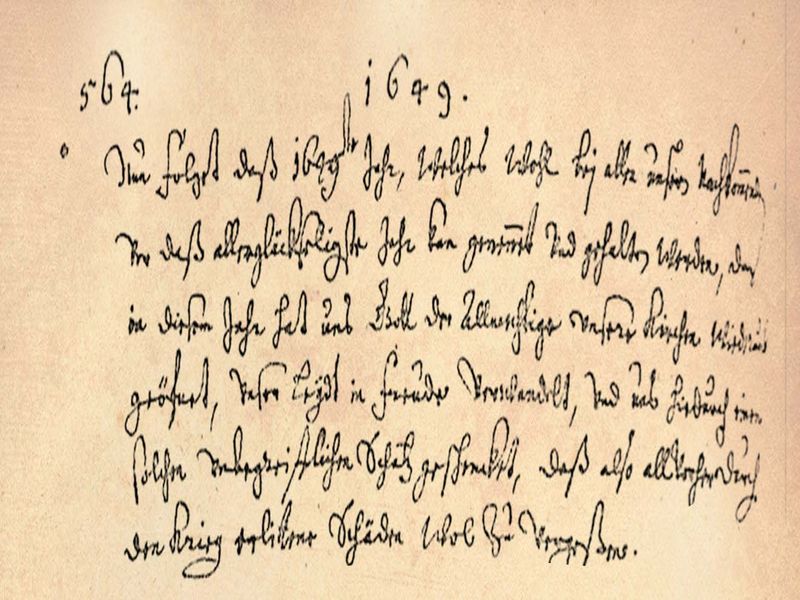 564. 1649.
Nun folget daß 1649te Jahr, welches wohl bej allen unsern Nachkommen
vor daß allerglückseligste Jahr kan genennet vnd gehalten werden, den
in diesem Jahr hat uns Gott der Allmechtige vnsere Kirchen wiederumb
geöfnet, vnser Leÿdt in Freude verwandelt, vnd uns hiedurch einen
solchen vnbegreiflichen Schatz geschencket, daß also all vorher durch
den Krieg erlittene Schäden wol zu vergeßen.